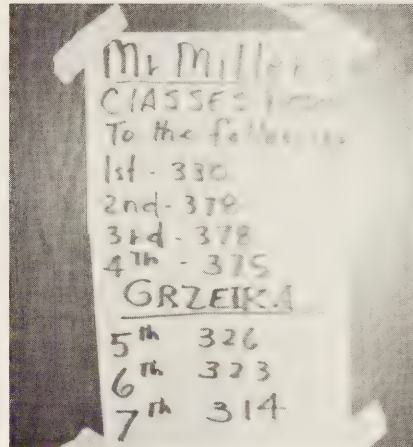 Mr Miller's
CLASSES
To the following
1st - 330
2nd - 378
3rd - 378
4Th - 375
GRZEIKA
5th 326
6th 323
7th 314